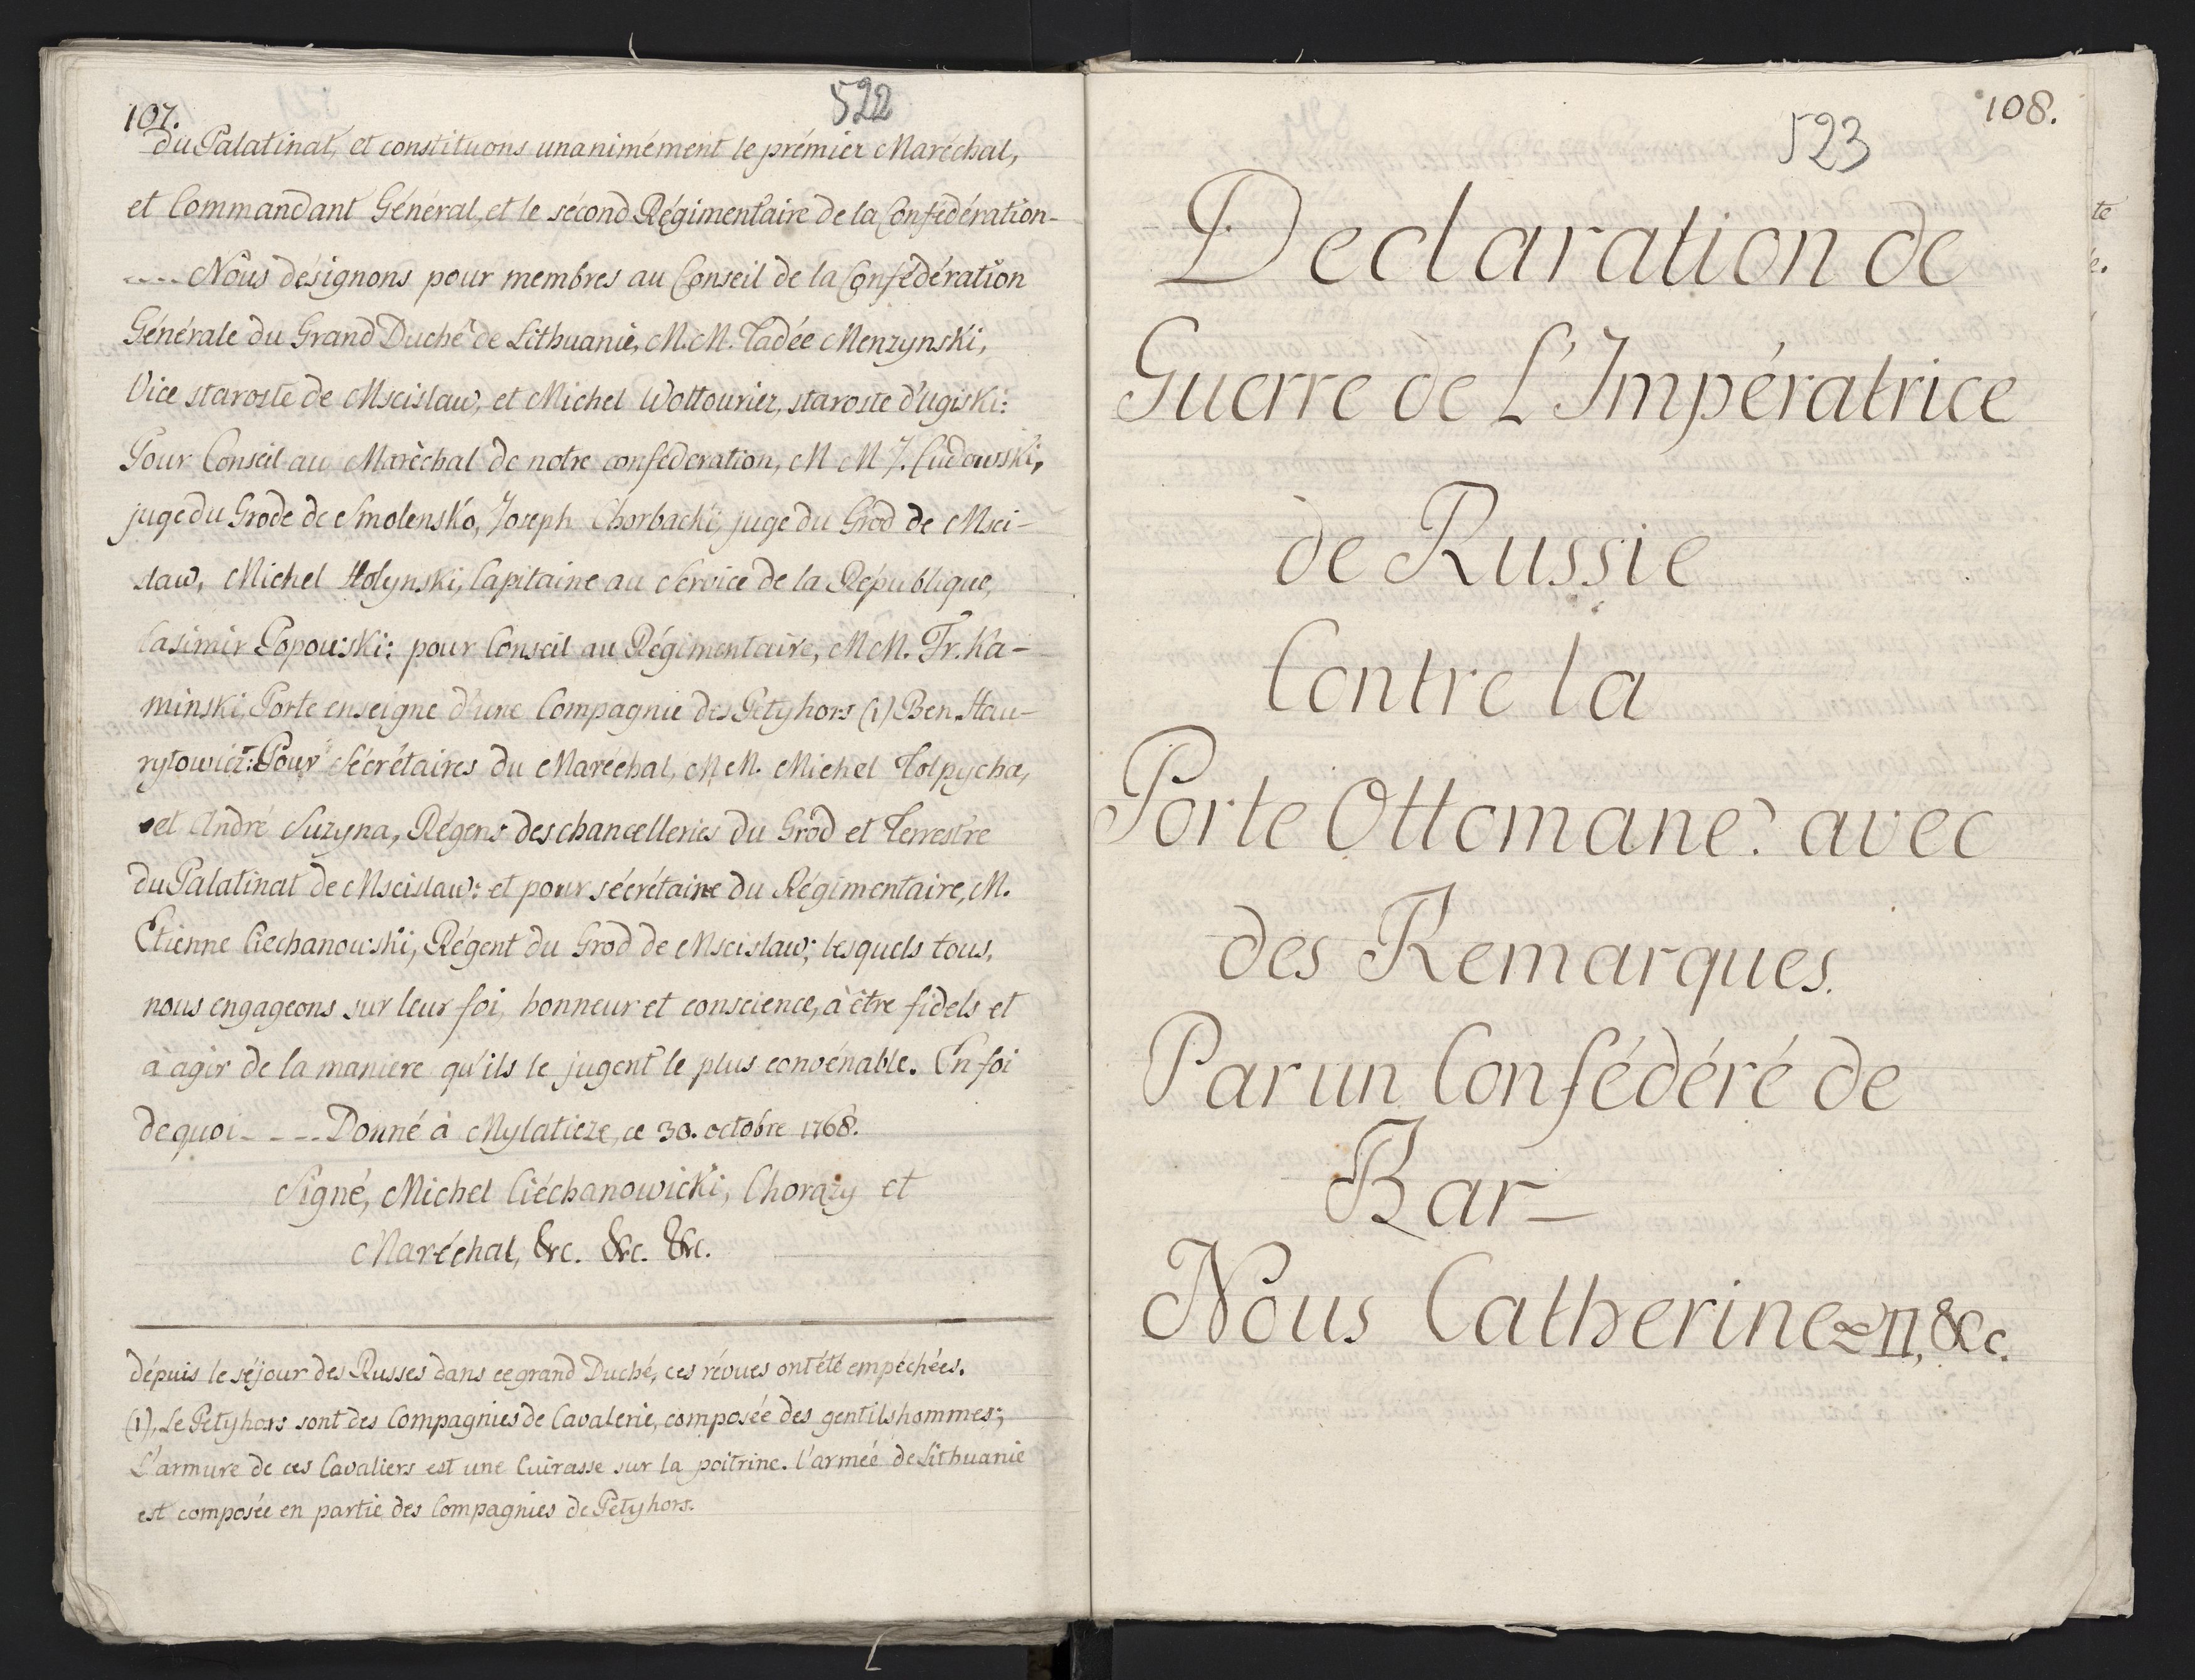 107.
522
du Palatinat, et constituons unanimément le prémier Maréchal,
et Commandant Général, et le sécond Régimentaire de la Confédération-
---- Nous désignons pour membres au Conseil de la Confédération
Générale du Grand Duché de Lithuanie, M.M. Tadée Menzynski,
Vice staroste de Mscislaw, et Michel Wottourier, staroste d'ugiski:
Pour Conseil au Maréchal de notre confédération, M M J. Cudowski,
juge du Grode de Smolensko, Joseph Chorbacki, juge du Grod de Msci-
slaw, Michel Holynski, Capitaine au Service de la République,
Casimir Popowski: pour Conseil au Régimentaire, M M. Fr. Ka-
minski, Porte enseigne d'une Compagnie des Petyhors (1) Ben. Hau-
rylowicz: Pour Sécrétaires du Maréchal, M M. Michel Tolpycha,
et André Suzyna, Régens des chancelleries du Grod et Terrestre
du Palatinat de Mscislaw: et pour sécrétaire du Régimentaire, M.
Etienne Ciechanowski, Régent du Grod de Mscislaw; lesquels tous,
nous engageons sur leur foi, honneur et conscience, à être fidels et
à agir de la maniere qu'ils le jugent le plus convénable. En foi
de quoi- - -- Donné à Mylaticze, ce 30. octobre 1768.
Signé, Michel Ciéchanowicki, Chorąży et
Maréchal, &c. &c. &c.
dépuis le séjour des Russes dans ce grand Duché, ces révues ont été empéchées.
(1), Le Petyhors sont des Compagnies de Cavalerie, composée des gentilshommes;
L'armure de ces Cavaliers est une Cuirasse sur la poitrine. l'armée de Lithuanie
est composée en partie des Compagnies de Petyhors.
108.
523
Declaration de
Guerre de L'Impératrice
de Russie
Contre la
Porte Ottomane: avec
des Remarques.
Par un Confédéré de
Bar-
Nous Catherine II, &c.
te
é.